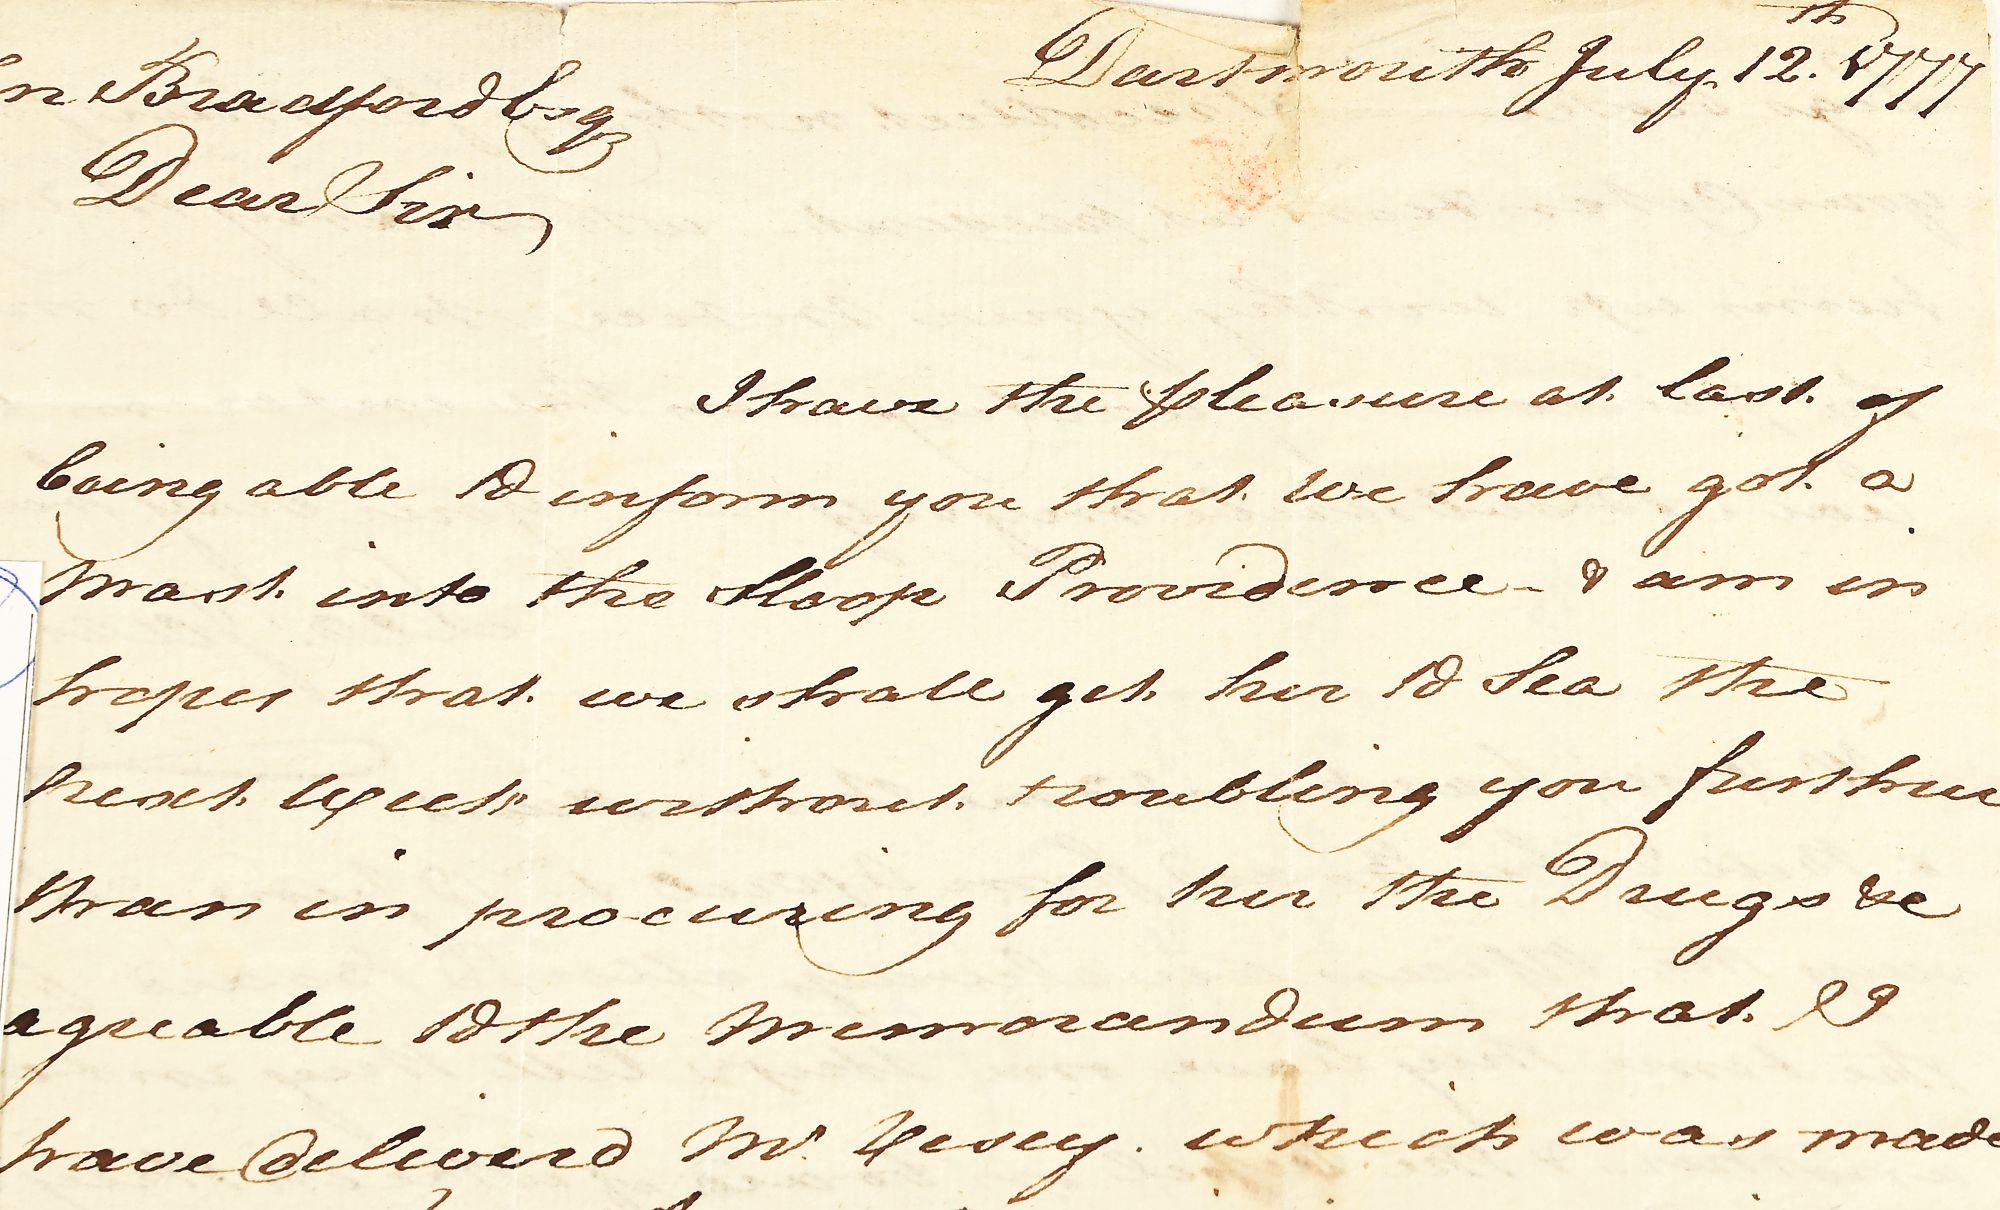 Dartmouth July. 12.th 1777
n Bradford Esqr
Dear Sir,
I have the pleasure at last of
being able to inform you that we have got a
Mast into the Sloop Providence - & am in
hopes that we shall get her to Sea the
next Week without troubling you further
than in procuring for her the Drugs &c
agreable to the Memorandum that I
have deliverd Mr. which was made